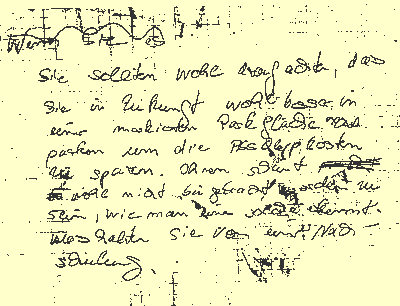 Wenn Sie es
Sie sollten wohl drauf achten, das
Sie in Zukunft wohl besser in
einer markierten Parkfläche
parken um die Abschleppkosten
zu sparen. Ihnen scheint
wohl nicht beigebracht worden zu
sein, wie man eine solche erkennt.
Was halten Sie von einer Nach-
schulung.